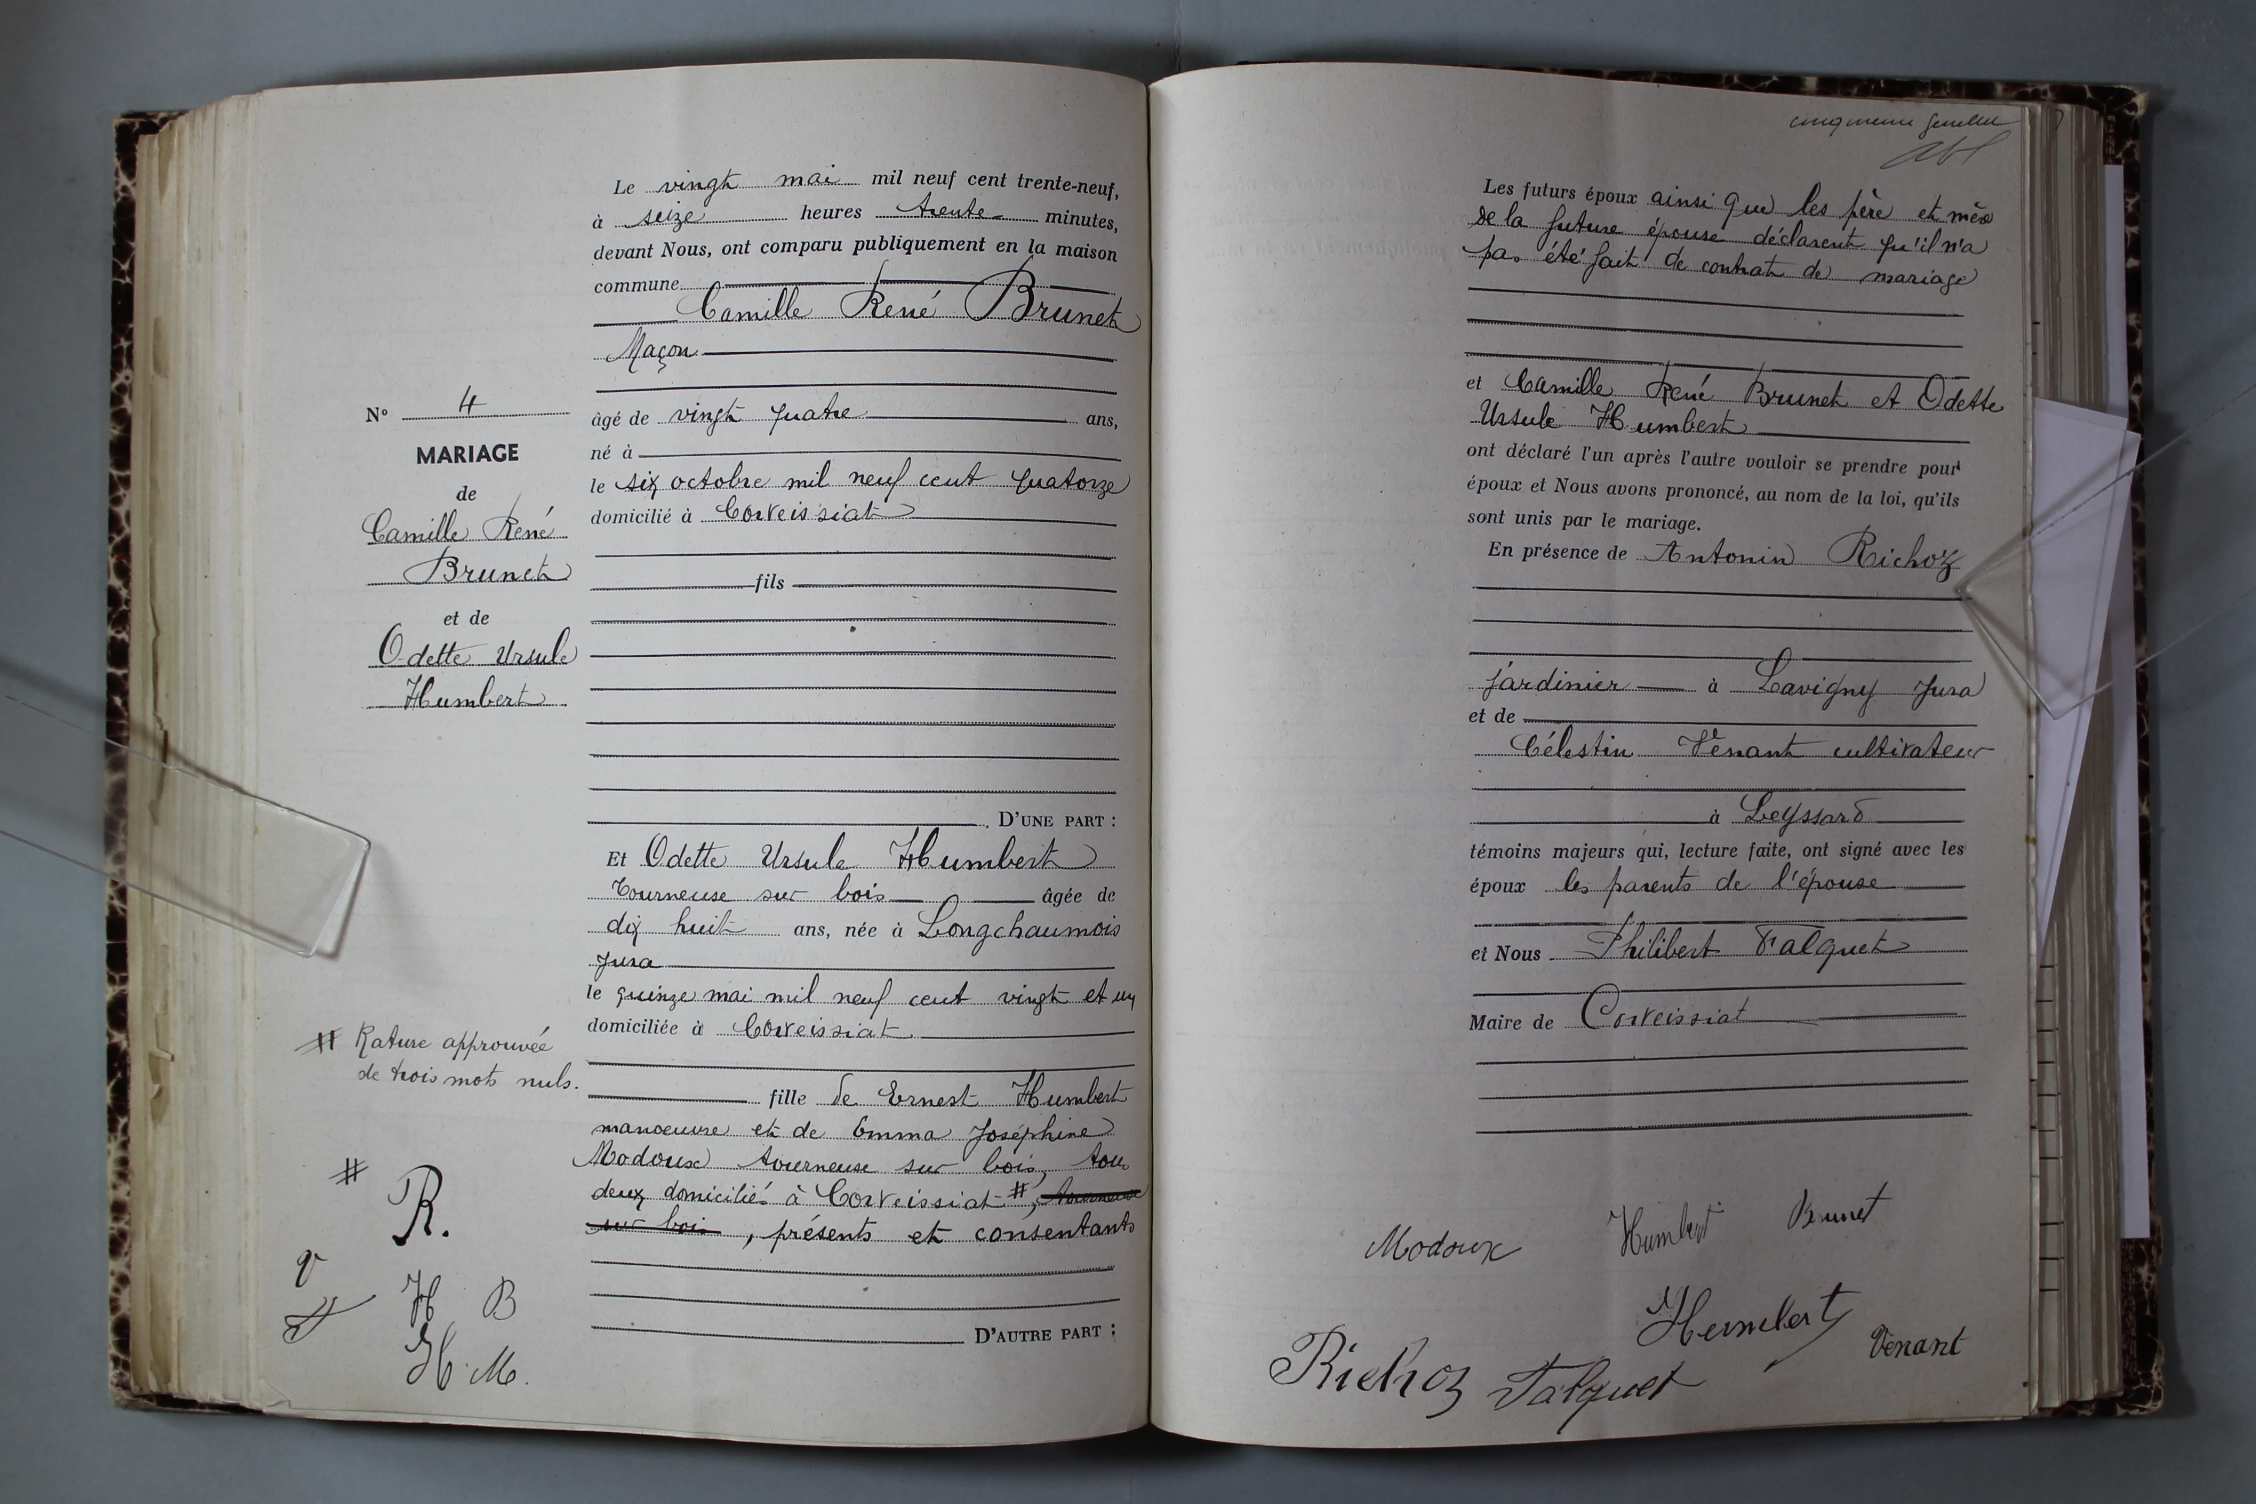 N° 4
MARIAGE
de
Camille René
Brunet
et de
Odette Ursule
Humbert
# Rature approuvée
de trois mots nuls.
#
R.
V
H B
H. M.
Le vingt mai mil neuf cent trente-neuf,
à seize heures trente minutes,
devant Nous, ont comparu publiquement en la maison
commune
Camille René Brunet
Maçon
âgé de vingt quatre ans,
né à
le six octobre mil neuf cent quatorze
domicilié à Corveissiat
fils
D'UNE PART :
Et Odette Ursule Humbert
Tourneuse sur bois âgée de
dix huit ans, née à Longchaumois
Jura
le quinze mai mil neuf cent vingt et un
domiciliée à Corveissiat
fille de Ernest Humbert
manoeuvre et de Emma Joséphine
Modoux tourneuse sur bois, tous
deux domiciliés à Corveissiat #, tourneuse
sur bois, présents et consentants
D'AUTRE PART :
Les futurs époux ainsi que les père et mère
de la future épouse déclarent qu'il n'a
pas été fait de contrat de mariage
et Camille René Brunet et Odette
Ursule Humbert
ont déclaré l'un après l'autre vouloir se prendre pour
époux et Nous avons prononcé, au nom de la loi, qu'ils
sont unis par le mariage.
En présence de Antonin Richoz
jardinier à Lavigny Jura
et de
Célestin Venant cultivateur
à Leyssard
témoins majeurs qui, lecture faite, ont signé avec les
époux les parents de l'épouse
et Nous Philibert Falquet
Maire de Corveissiat
Modoux Humbert Brunet
Humbert
Richoz Falquet Venant